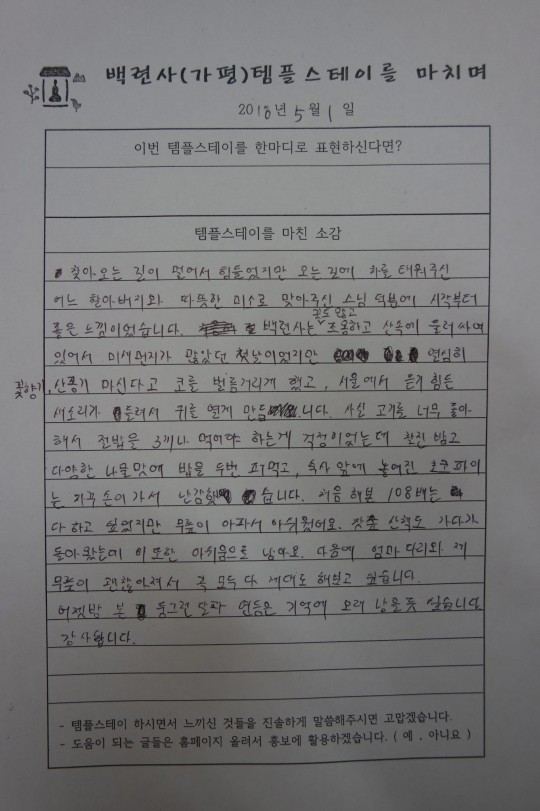 백련사(가평)템플스테이를 마치며
2018년 5월 1일
이번 템플스테이를 한마디로 표현하신다면?
템플스테이를 마친 소감
찾아오는 길이 멀어서 힘들었지만 오는길에 차를 태워주신
어느 할아버지와 따뜻한 미소로 맞아주신 스님 덕분에 시작부터
좋은 느낌이었습니다. 백련사는 조용하고 산속에 둘러싸여
있어서 미세먼지가 많았던 첫날이었지만 열심히
꽃향기, 산공기 마신다고 코를 벌름거리게 했고, 서울에서 듣기 힘든
새소리가 들려서 귀를 열게 만듭니다. 사실 고기를 너무 좋아
해서 절밥을 3끼나 먹어야 하는게 걱정이었는데 찰진 밥과
다양한 나물맛에 밥을 두번 퍼먹고, 숙사 앞에 놓여진 초코파이
는 자꾸 손이가서 난감했습니다. 처음 해본 108배는
다 하고 싶었지만 무릎이 아파서 아쉬웠어요. 잣숲 산책도 가다가
돌아왔는데 이 또한 아쉬움으로 남아요. 다음에 엄마 다리와 제
무릎이 괜찮아져서 꼭 모두 다 제대로 해보고 싶습니다.
어젯밤 본 둥그런 달과 연등은 기억에 오래 남을듯 싶습니다
감사합니다.
- 템플스테이 하시면서 느끼신 것들을 진솔하게 말씀해주시면 고맙겠습니다.
- 도움이 되는 글들은 홈페이지 올려서 홍보에 활용하겠습니다. ( 예 , 아니요 )